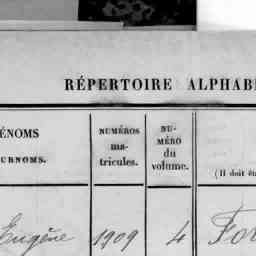 RÉPERTOIRE ALPHABÉ
ÉNOMS
URNOMS.
NUMÉROS
ma-
tricules.
NU-
MÉRO
du
volume.
(Il doit êt
Eugène 1909 4 For